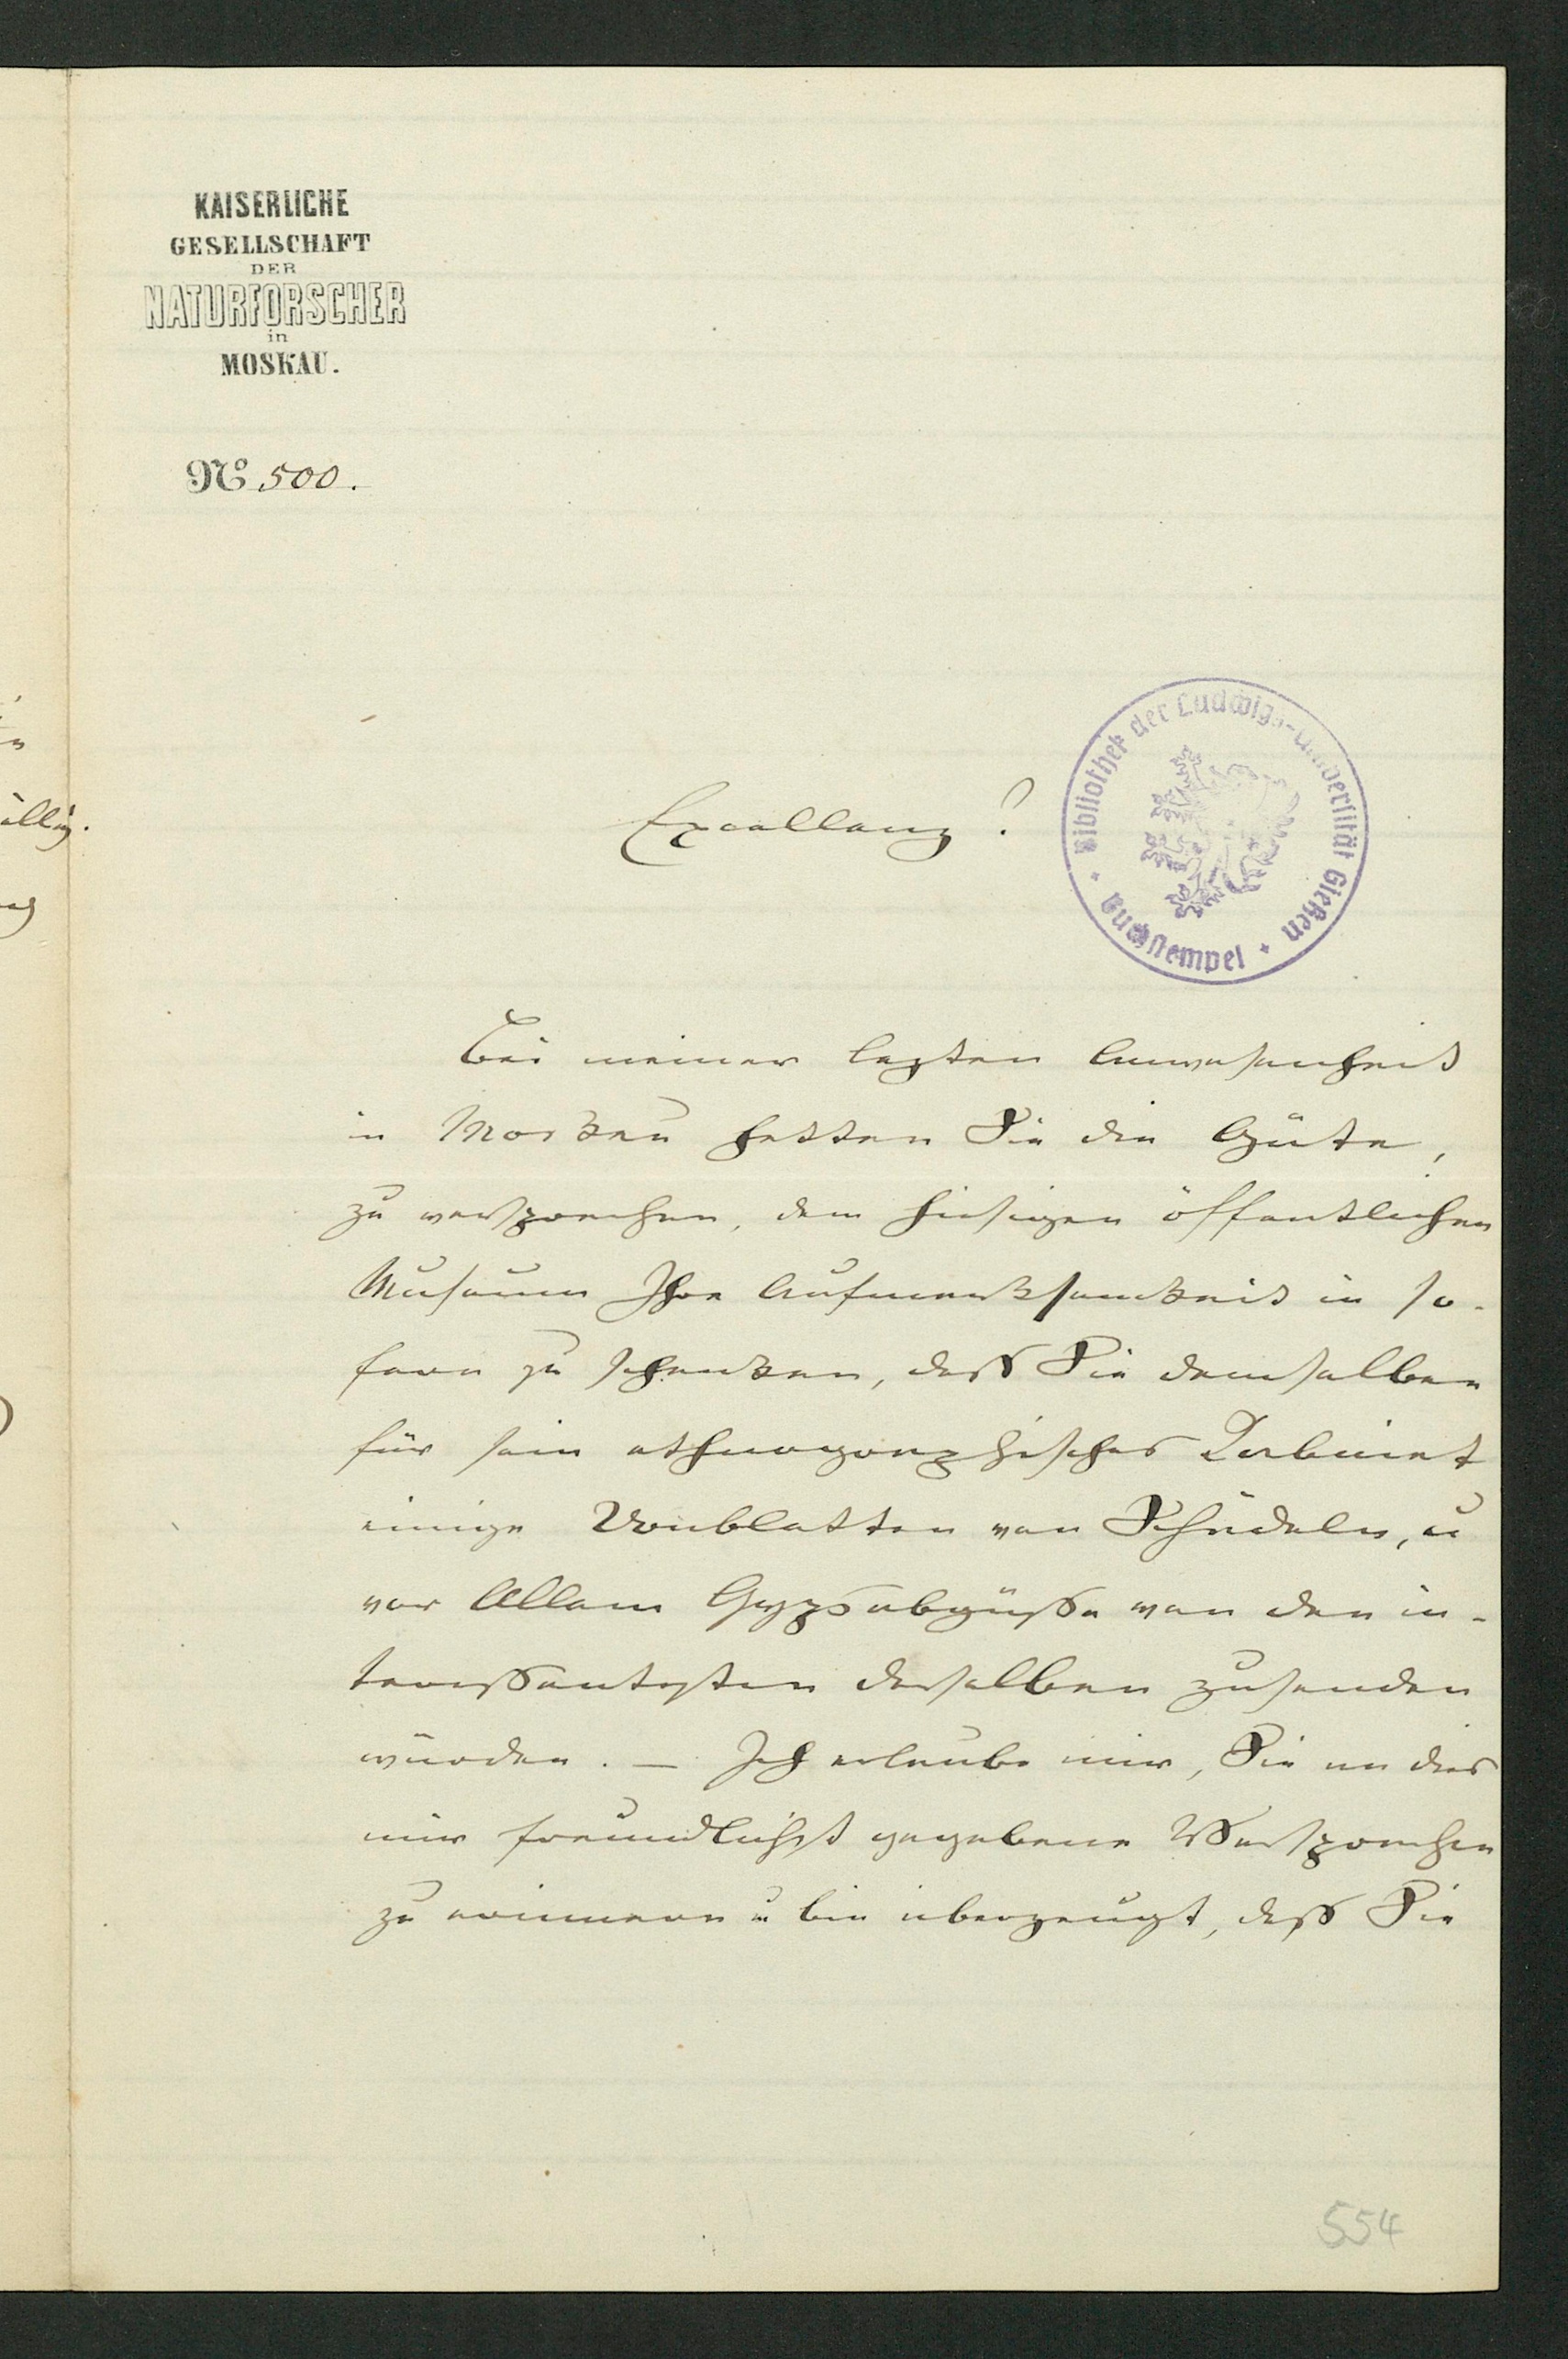 KAISERLICHE
GESELLSCHAFT
DER
NATURFORSCHER
in
MOSKAU.
No 500.
Excellenz!
Bibliothek der Ludwigs-Universität Gießen
Buchstempel
Bei meiner letzten Anwesenheit
in Moskau hatten Sie die Güte,
zu versprechen, dem hiesigen öffentlichen
Museum Ihre Aufmerksamkeit in so-
fern zu schenken, dass Sie demselben
für sein ethnographisches Kabinet
einige Doubletten von Schädeln, u
vor Allem Gypsabgüsse von den in-
teressantesten derselben zusenden
würden. — Ich erlaube mir, Sie an dies
mir freundlichst gegebene Versprechen
zu erinnern u bin überzeugt, dass Sie
554